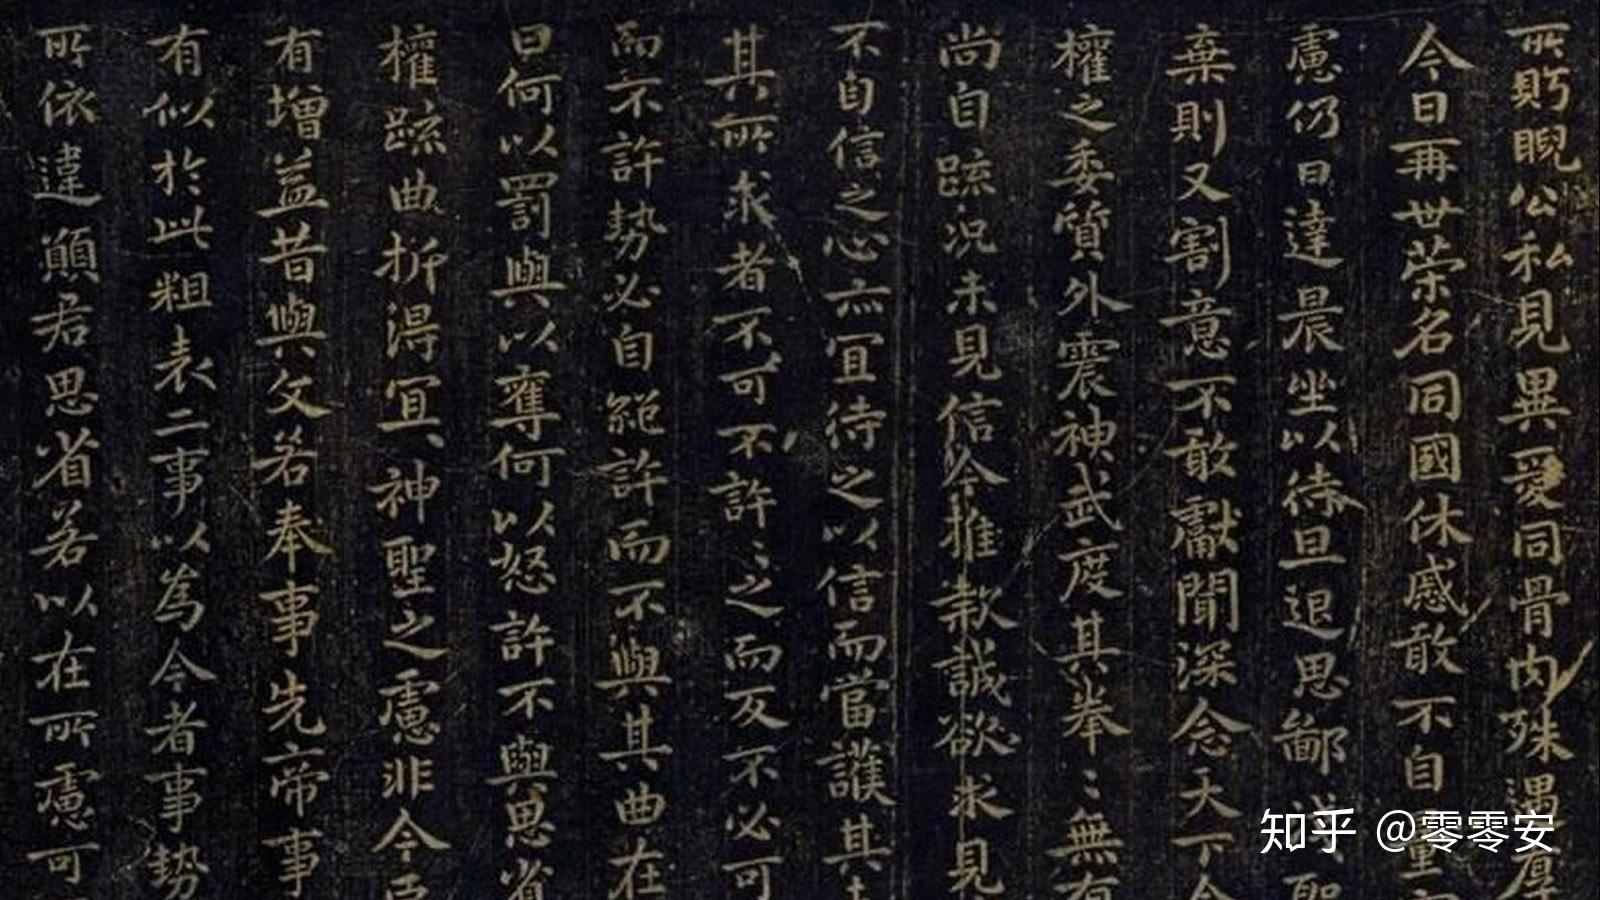 所貯睨公私見異愛同骨肉殊遇厚
今日再世荣名同國休慼敢不自
慮仍日達晨坐以待旦退思鄙淺聖
棄則又割意不敢獻聞深念天下今
權之委質外震神武度其拳〻無有
尚自疏況未見信今推款誠欲求見
不自信之心亦宜待之以信而當護其
其所求者不可不許〻之而反不必可
而不許勢必自絕許而不與其曲在
曰何以罰與以奪何以怒許不與思省
權疏曲折得宜神聖之慮非今臣
有增益昔與文若奉事先帝事
有似於此粗表二事以為今者事勢
所依違願君思省若以在所慮可
知乎 @零零安